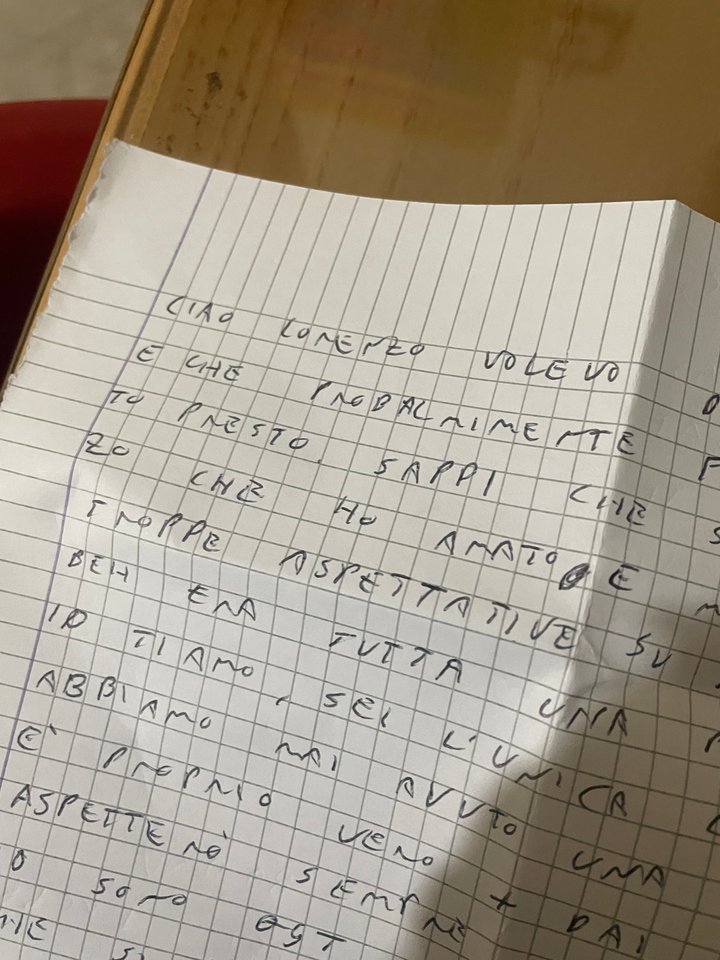 CIAO LORENZO VOLEVO D
E CHE PROBALMIMENTE F
TO PRESTO. SAPPI CHE S
ZO CHE HO AMATO E M
TROPPE ASPETTATIVE SU
BEH ERA TUTTA UNA P
IO TI AMO, SEI L'UNICA
ABBIAMO MAI AVUTO UNA
E' PROPRIO VERO + DAI
ASPETTERÒ SEMPRE
O SONO
HE